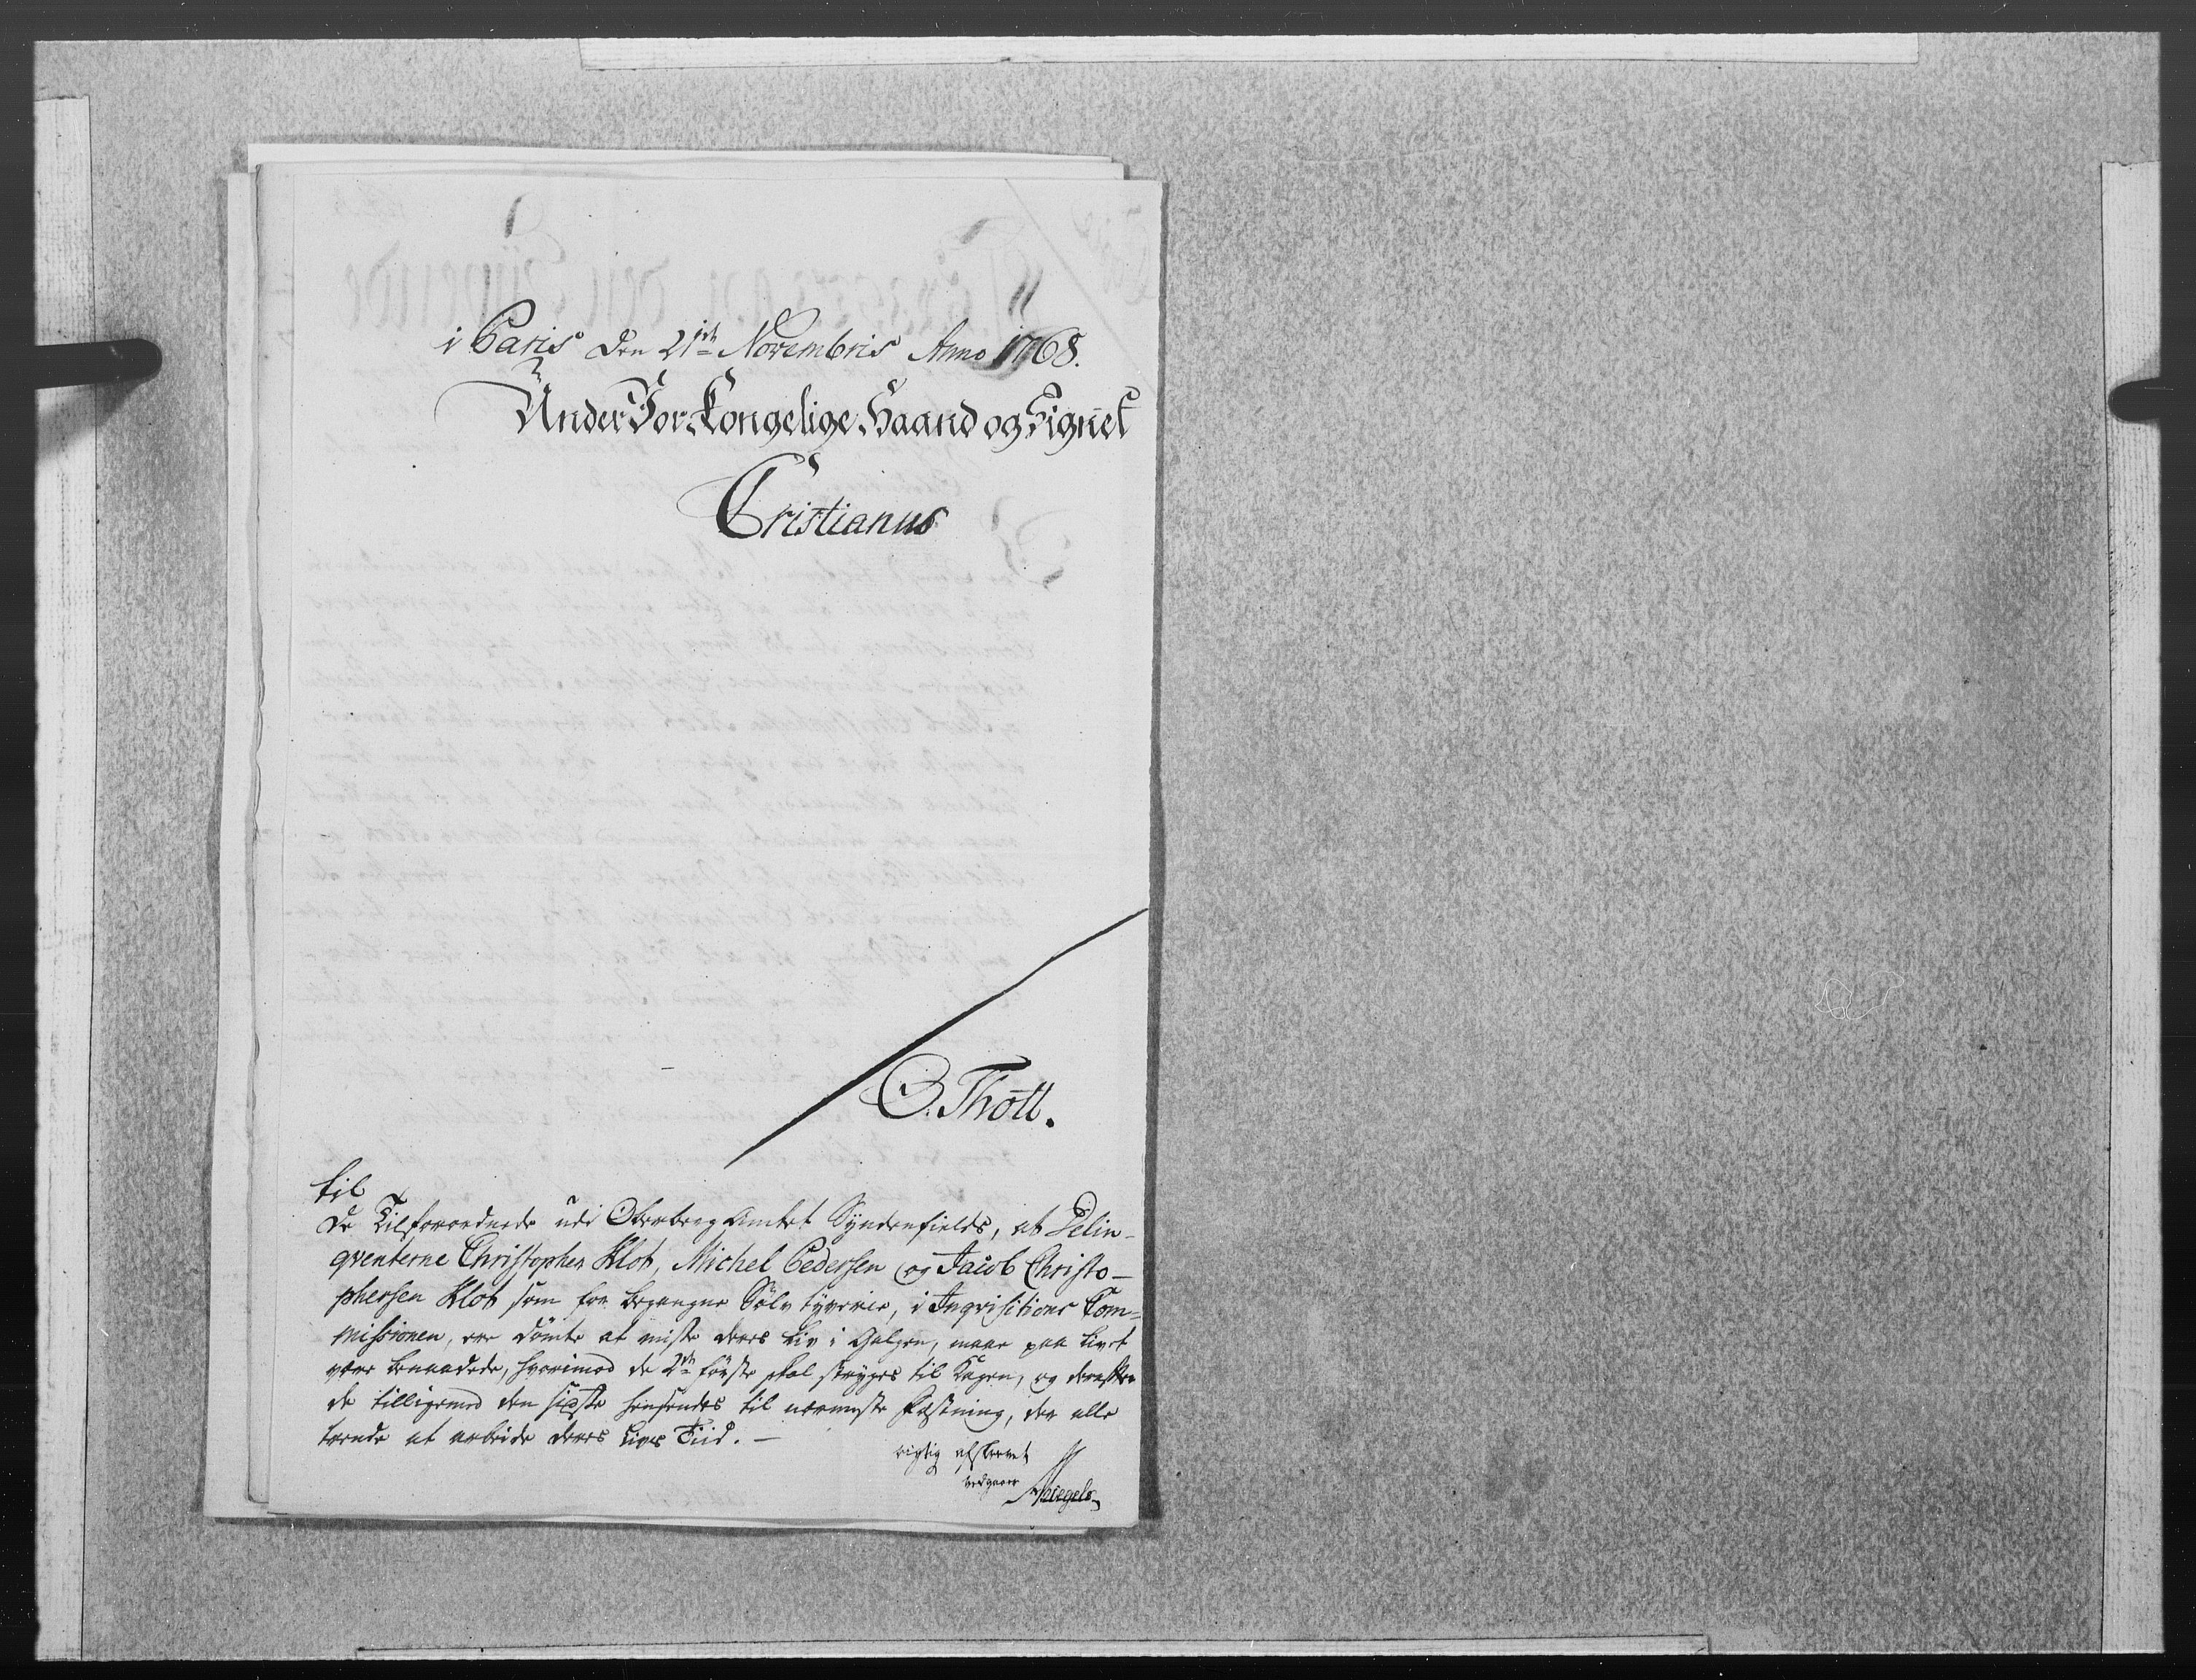 i Paris den 21de Novembris Anno 1768.
Under Vor Kongelige Haand og Signet
Cristianus
O. Thott.
til
de Tilforordnede udi Oberberg Amtet Syndenfields, at Delin-
qventerne Christopher Klot, Michel Pedersen og Jacob Christo-
phersen Klot som for begangne Sølv tyverie, i Inqvisitions Com-
missionen, ere dømte at miste deres liv i Galgen, maae paa livet
være benaadede, hvorimod de 2de første skal stryges til Kagen, og derefter
de tilligemed den sidste hensendes til nærmeste Fæstning, der alle
trende at arbeide deres Livs Tiid. -
rigtig afskrevet
vedgaaer